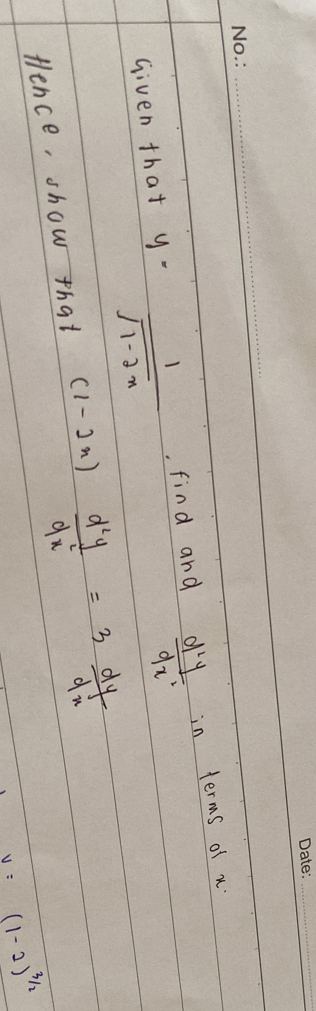 No.: Date:
Given that y = 1/√(1-2x) , find and d²y/dx² in terms of x.
Hence, show that (1-2x) d²y/dx² = 3 dy/dx
v = (1-2)^3/2